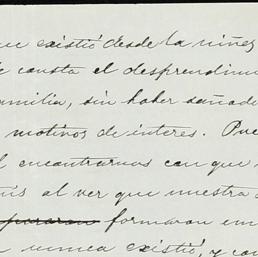 existió desde la niñez
consta el desprendim
familia, sin haber soñado
motivos de interes. Pue
encontrarnos con que
al ver que nuestra
formaron em
nunca existió, y con